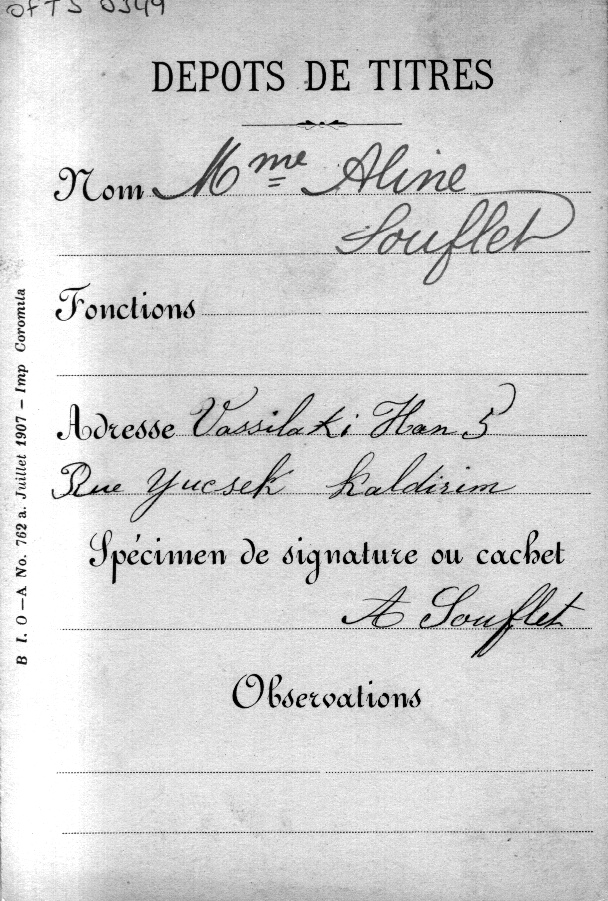 OFTS 0349
DEPOTS DE TITRES
Nom Mme Aline
Souflet
Fonctions
Adresse Vassilaki Han 5
Rue Yucsek Kaldirim
Spécimen de signature ou cachet
A Souflet
Observations
B I. O – A No. 762 a. Juillet 1907 – Imp Coromila